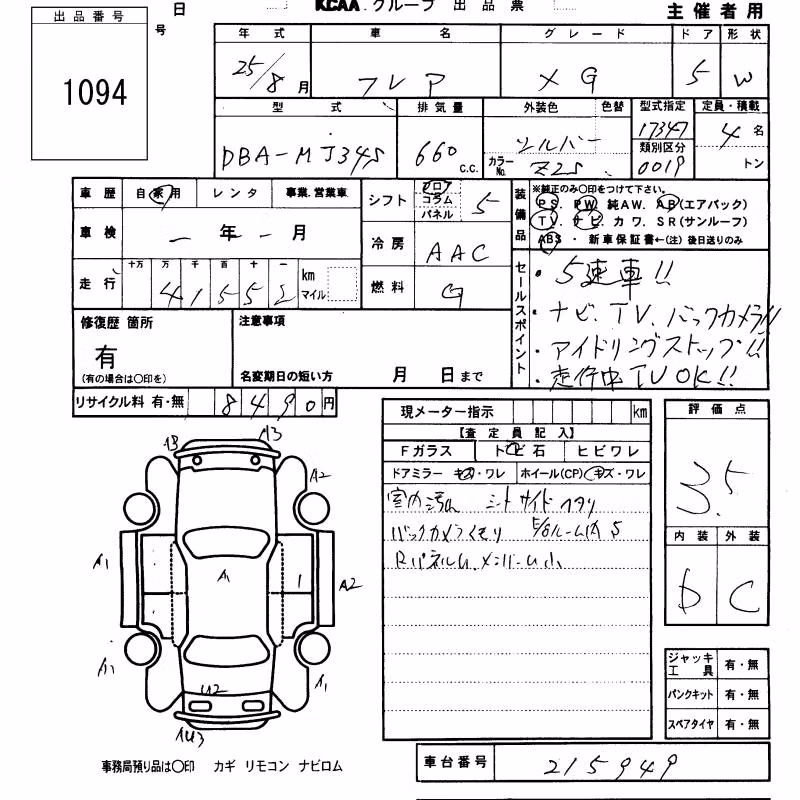 日
KCAA.グループ 出品票
主催者用
出品番号
号
1094
年式 車名 グレード ドア 形状
25/8月 フレア XG 5 W
型式 排気量 外装色 色替 型式指定 定員・積載
DBA-MJ34S 660 c.c. シルバー 17347 4名
カラーNo. Z2S 類別区分 0019 トン
車歴 自家用 レンタ 事業.営業車
シフト フロア コラム パネル 5
装備品 ※純正のみ〇印をつけて下さい。
PS. PW 純AW. AB(エアバッグ)
TV. ナビ. カワ. SR(サンルーフ)
ABS ・ 新車保証書←(注) 後日送りのみ
車検 ー年ー月
冷房 AAC
走行 十万 万 千 百 十 一 km マイル
41552
燃料 G
セールスポイント
・5速車!!
・ナビ、TV、バックカメラ!!
・アイドリングストップ!!
・走行中TVOK!!
修復歴 箇所
有
(有の場合は〇印を)
注意事項
名変期日の短い方 月 日まで
リサイクル料 有・無 8490円
現メーター指示 km
【査定員記入】
Fガラス トビ石 ヒビワレ
ドアミラー キズ・ワレ ホイール(CP) キズ・ワレ
室内汚れ シートサイドヘタリ
バックカメラくもり ルーム内S
Rパネルム、メンバーム小
評価点
3.5
内装 外装
D C
A3
A2
A1
A1
A2
A1
A1
U2
ジャッキ工具 有・無
パンクキット 有・無
スペアタイヤ 有・無
事務局預り品は〇印 カギ リモコン ナビロム
車台番号 215949